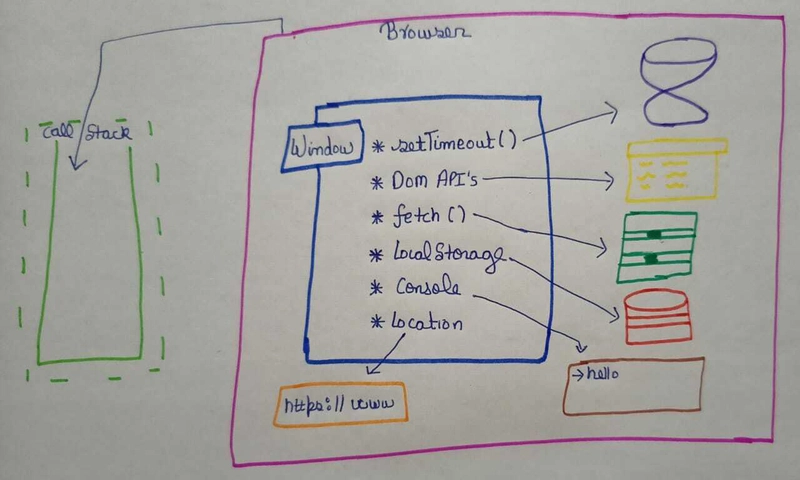 Browser
Call Stack
Window
* setTimeout()
* Dom API's
* fetch()
* Local Storage
* Console
* Location
https:// www
→ hello